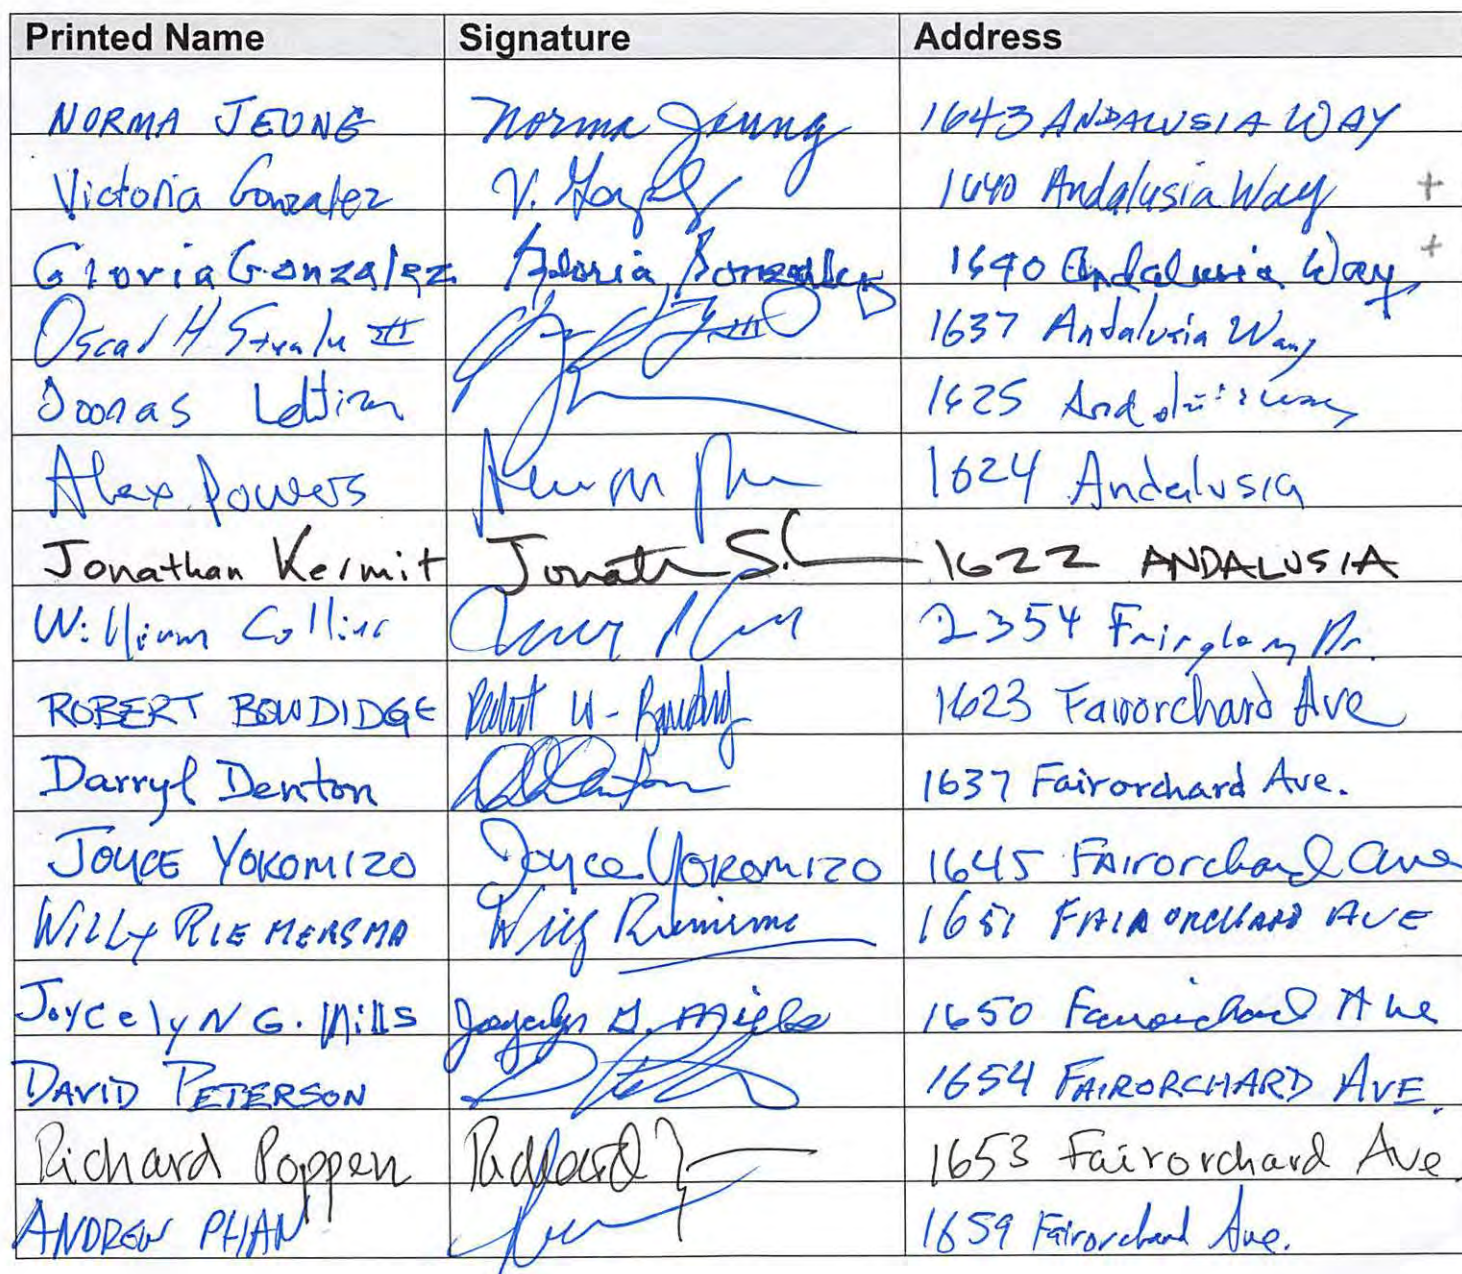 Printed Name Signature Address
NORMA JEUNG Norma Jeung 1643 ANDALUSIA WAY
Victoria Gonzalez V. 1640 Andalusia Way +
Gloria Gonzalez Gloria Gonzalez 1640 Andalusia Way +
Oscar H III 1637 Andalusia Way
1625
Alex Powers 1624 Andalusia
Jonathan Kermit 1622 ANDALUSIA
William 2354
ROBERT BOWDIDGE 1623 Fairorchard Ave
Darryl Denton 1637 Fairorchard Ave.
JOYCE YOKOMIZO Joyce Yokomizo 1645 FAirorchard Ave
WILLY RIEMERSMA Willy Riemersma 1651 FAIRORCHARD AVE
JoycelyN G. Mills Joycelyn G. Mills 1650 Fairorchard Ave
DAVID PETERSON 1654 FAIRORCHARD AVE.
Richard Poppen 1653 Fairorchard Ave
ANDREW PHAN 1659 Fairorchard Ave.